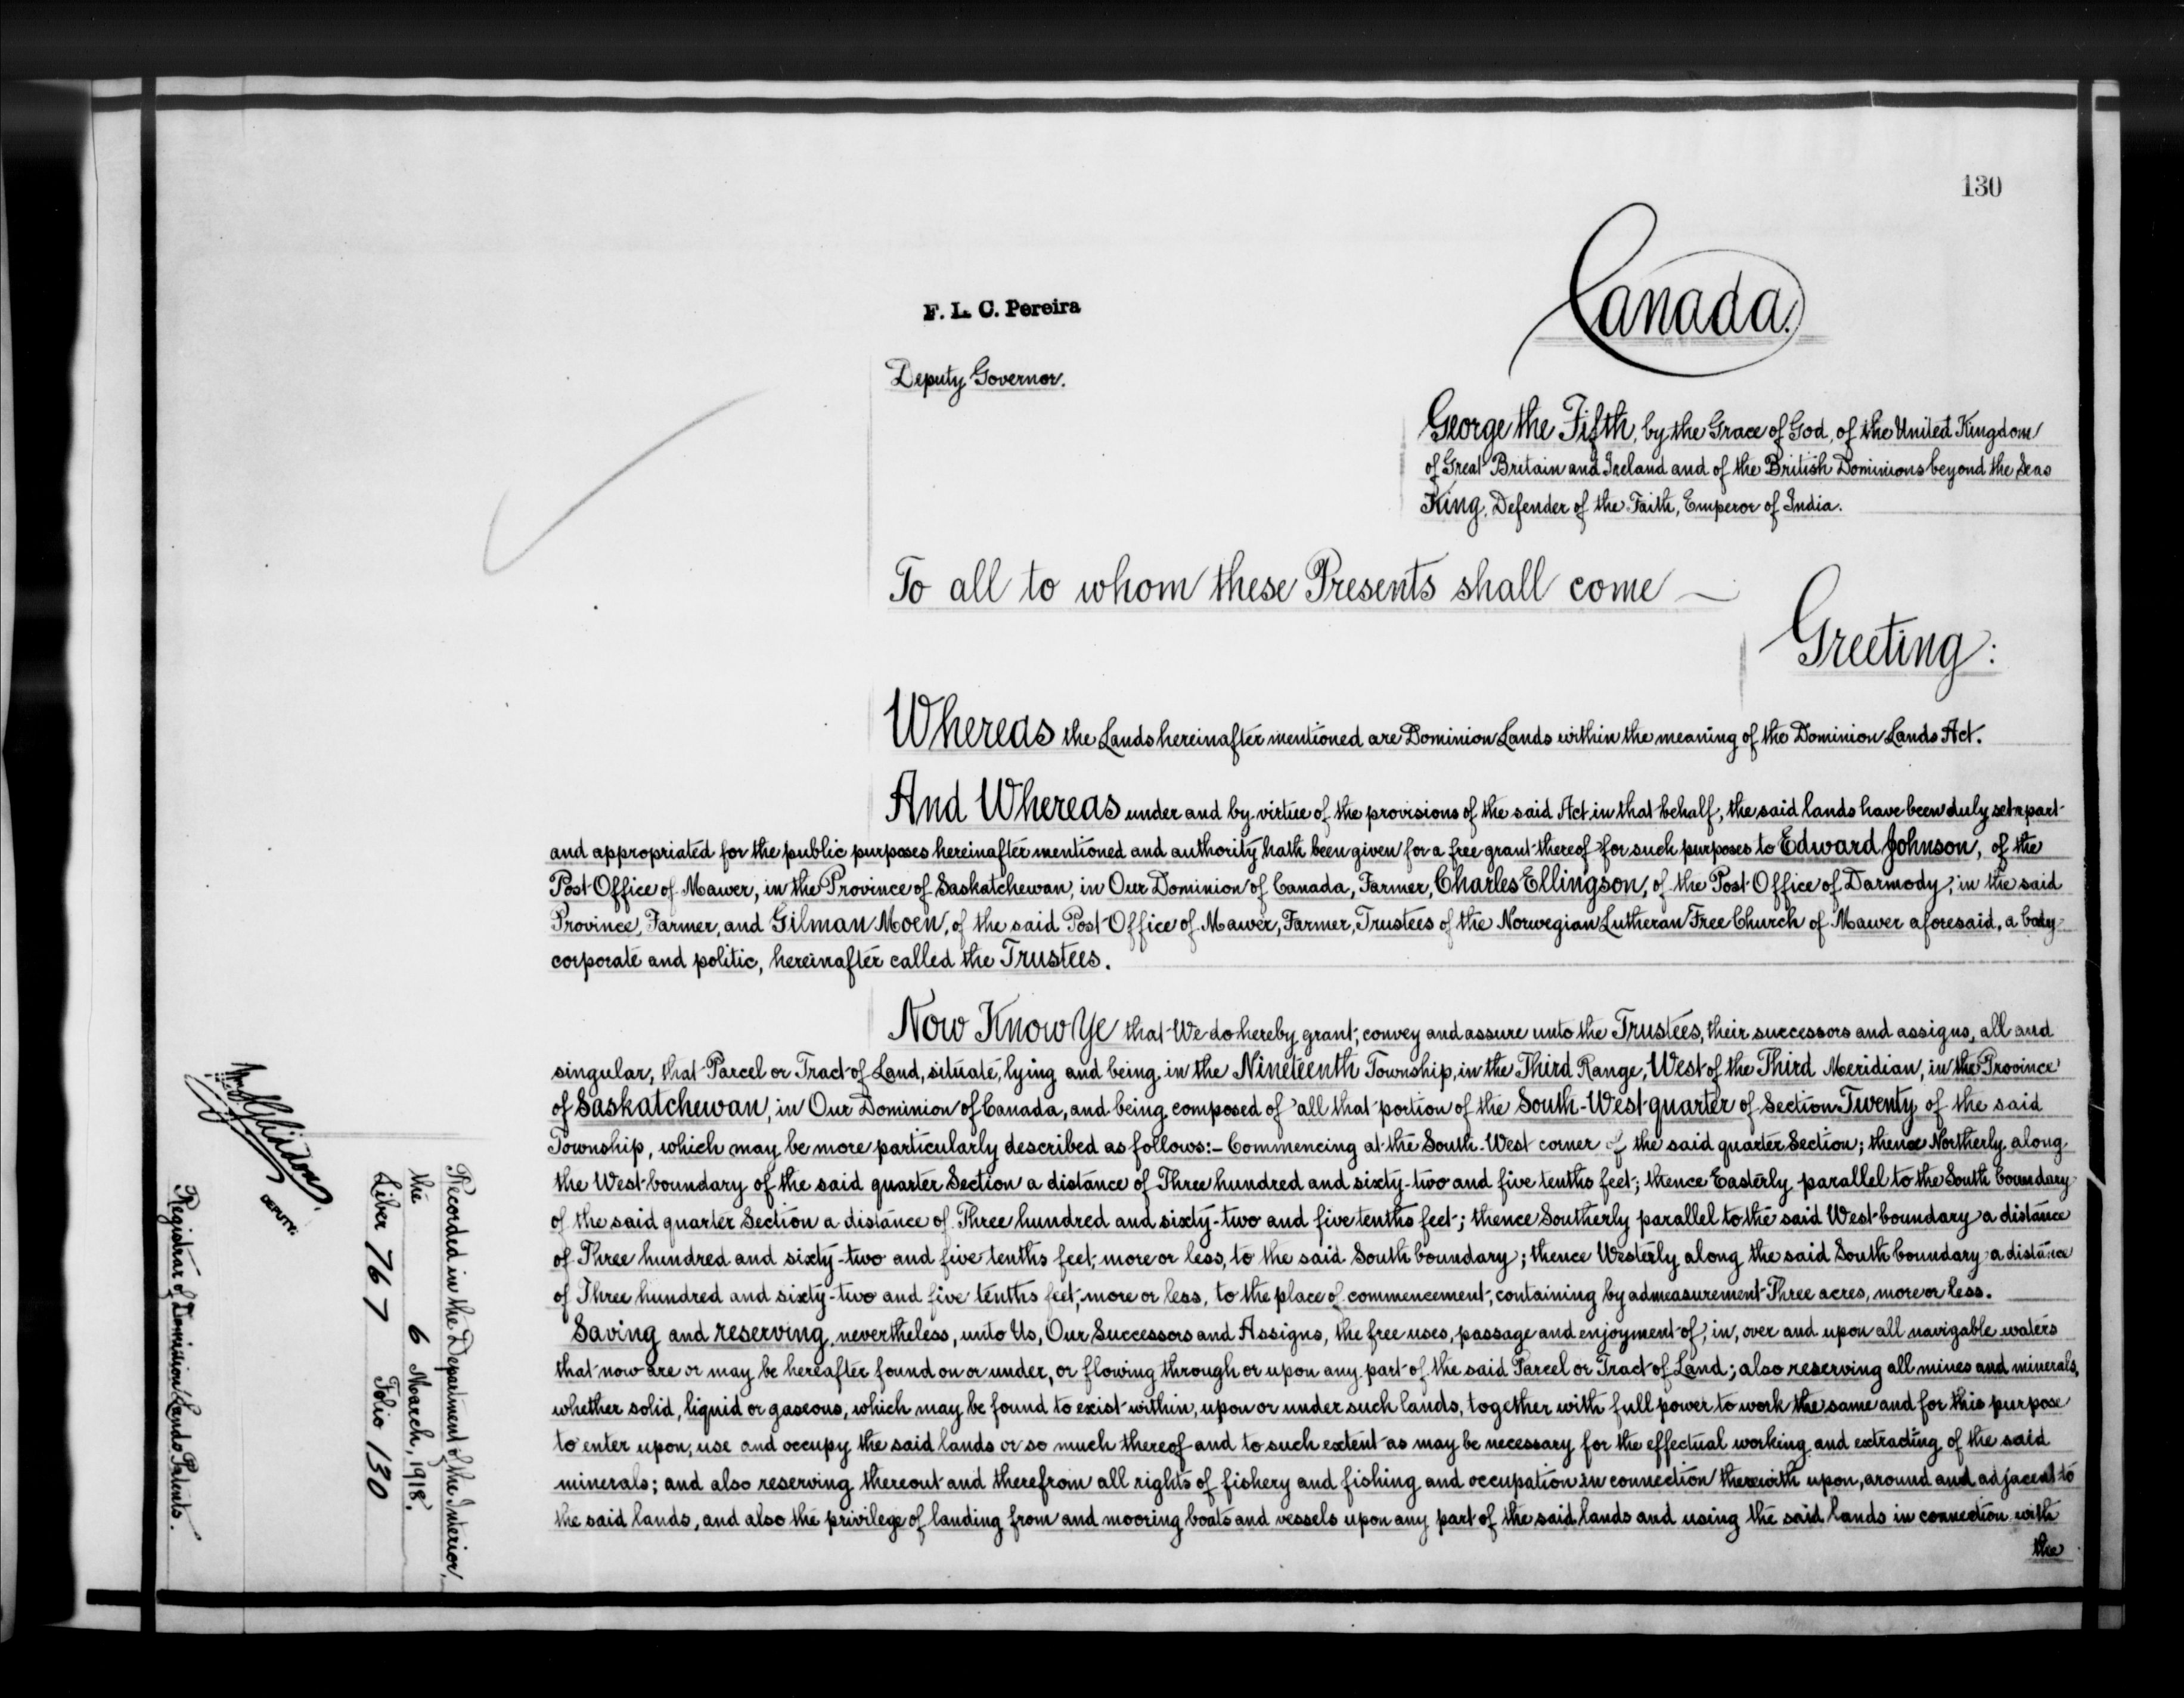 130
Canada.
F. L. C. Pereira
Deputy Governor.
George the Fifth, by the Grace of God, of the United Kingdom
of Great Britain and Ireland and of the British Dominions beyond the Seas
King, Defender of the Faith, Emperor of India.
To all to whom these Presents shall come
Greeting:
Whereas the Lands hereinafter mentioned are Dominion Lands within the meaning of the Dominion Lands Act.
And Whereas under and by virtue of the provisions of the said Act in that behalf, the said lands have been duly set apart
and appropriated for the public purposes hereinafter mentioned and authority hath been given for a free grant thereof for such purposes to Edward Johnson, of the
Post Office of Mawer, in the Province of Saskatchewan, in Our Dominion of Canada, Farmer, Charles Ellingson, of the Post Office of Darmody, in the said
Province, Farmer, and Gilman Moen, of the said Post Office of Mawer, Farmer, Trustees of the Norwegian Lutheran Free Church of Mawer aforesaid, a body
corporate and politic, hereinafter called the Trustees.
Now Know Ye that We do hereby grant, convey and assure unto the Trustees, their successors and assigns, all and
singular, that Parcel or Tract of Land, situate, lying and being in the Nineteenth Township, in the Third Range, West of the Third Meridian, in the Province
of Saskatchewan, in Our Dominion of Canada, and being composed of all that portion of the South-West quarter of Section Twenty of the said
Township, which may be more particularly described as follows:- Commencing at the South-West corner of the said quarter Section; thence Northerly along
the West boundary of the said quarter Section a distance of Three hundred and sixty-two and five tenths feet; thence Easterly parallel to the South boundary
of the said quarter Section a distance of Three hundred and sixty-two and five tenths feet; thence Southerly parallel to the said West boundary a distance
of Three hundred and sixty-two and five tenths feet, more or less, to the said South boundary; thence Westerly along the said South boundary a distance
of Three hundred and sixty-two and five tenths feet, more or less, to the place of commencement, containing by admeasurement Three acres, more or less.
Saving and reserving, nevertheless, unto Us, Our Successors and Assigns, the free uses, passage and enjoyment of, in, over and upon all navigable waters
that now are or may be hereafter found on or under, or flowing through or upon any part of the said Parcel or Tract of Land; also reserving all mines and minerals,
whether solid, liquid or gaseous, which may be found to exist within, upon or under such lands, together with full power to work the same and for this purpose
to enter upon, use and occupy the said lands or so much thereof and to such extent as may be necessary for the effectual working and extracting of the said
minerals; and also reserving thereout and therefrom all rights of fishery and fishing and occupation in connection therewith upon, around and adjacent to
the said lands, and also the privilege of landing from and mooring boats and vessels upon any part of the said lands and using the said lands in connection with
the
Recorded in the Department of the Interior,
the 6 March, 1918.
Liber 767 Folio 130
DEPUTY
Registrar of Dominion Lands Patents.